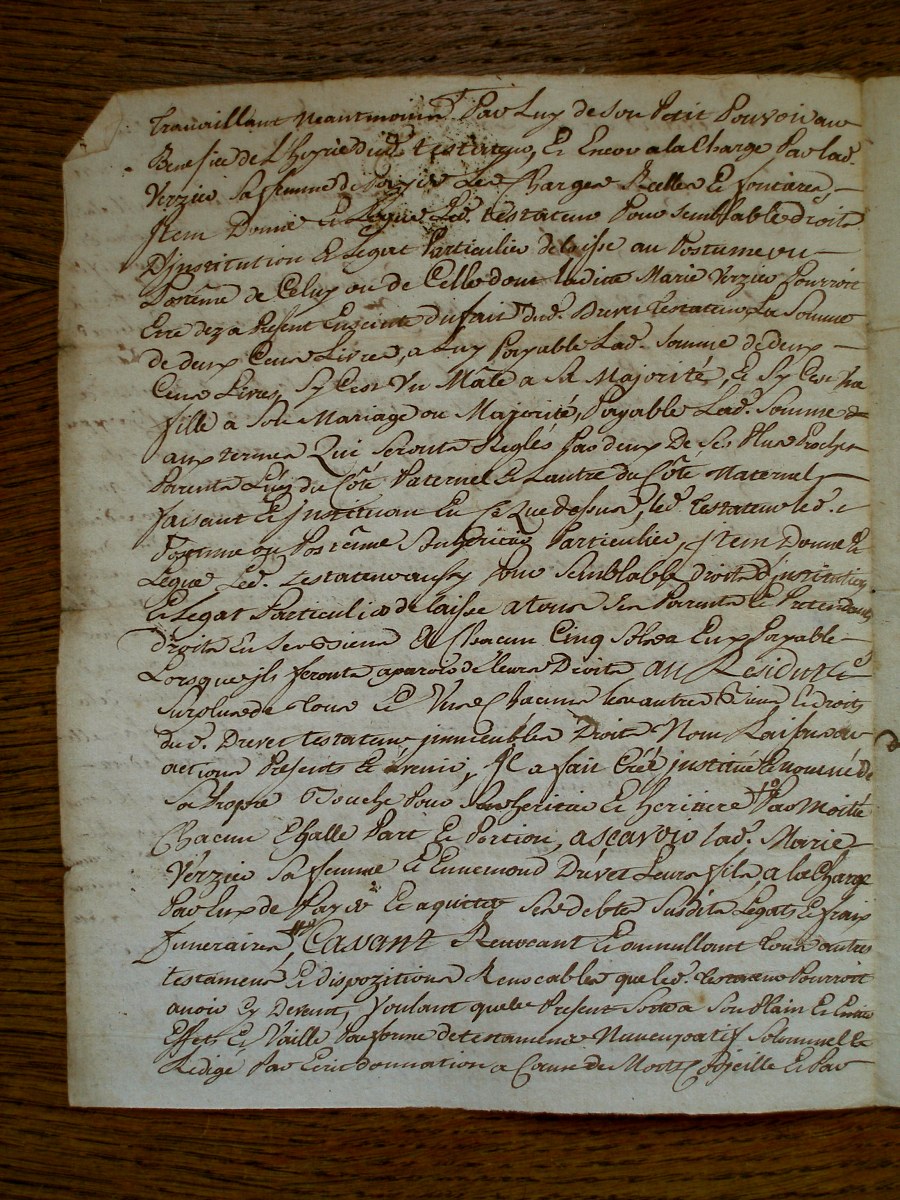 travaillant neantmoins Par Luy de son Petit Pouvoir au
Benefice de L'hoyrie dud. testateur, Et Encor a la Charge Par lad.
Verzier Sa femme de Payer Les Charges Reelles Et foncieres,
Item Donne Et Legue Led. testateur Pour semblable droit
D'institution Et Legat Particulier delaisse au Postume ou
Postûme de Celuy ou de Celle dont Ladite Marie Verzier Pourroit
Etre deza Present Enceinte du fait dud. Drevet testateur La Somme
de deux Cents Livres, a Luy Payable Lad. Somme de deux
Cents Livres Sy C'est Un Mâle a Sa Majorité, Et Sy C'est Une
fille a Son Mariage ou Majorité, Payable Lad. Somme
aux termes Qui Seronts Reglés Par deux De Ses Plus Proches
Parents L'un du Côté Paternel Et Lautre du Côté Maternel
faisant Et instituant En Ce Que dessus, led. testateur led.
Postume ou Postûme Son heritier Particulier, item Donne Et
Legue Led. testateur aussy Pour Semblable droit d'institution
Et Legat Particulier delaisse a tous Ses Parents Et Pretendants
droits En Ses Biens Et Chacun Cinq Sols a Eux Payable
Lorsque ils feronts aparoir de leurs Droits, au Residu Et
Surplus de tous Et Uns Chacuns les autres Biens Et droits
dud. Drevet testateur immeubles Droits Nom Raisons
actions Presents Et avenir, Il a fait Créé institué Et nommé De
Sa Propre Bouche Pour Ses heritier Et heritiere Par Moitié
Chacun Egalle Part Et Portion, ascavoir lad. Marie
Verzier Sa femme Et Ennemond Drevet Leurs fils a la Charge
Par Eux de Payer Et aquitter Ses debtes Susdits Legats Et fraix
funeraires, Cavant Revocant Et annullant tous autres
testaments Et dispozitions Revocables que led. testateur Pourroit
avoir Cy Devant, Voulant que le Present Sorte a Son Plain Et Entier
Effets Et Vaille Par forme de testament Nuncupatif Solemnel Et
Redigé Par Ecrit donnation a Cause de Mort Codicille Et Par